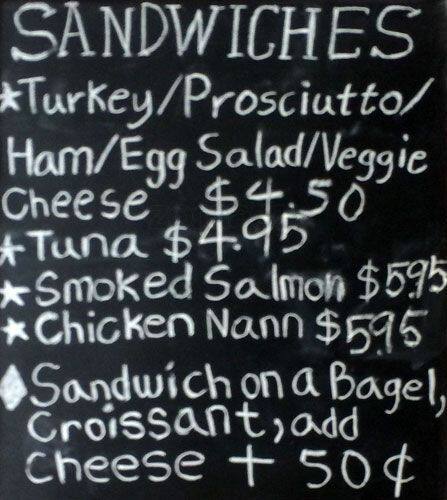 SANDWICHES
★Turkey/Prosciutto/
Ham/Egg Salad/Veggie
Cheese $4.50
★Tuna $4.95
★Smoked Salmon $5.95
★Chicken Nann $5.95
♦Sandwich on a Bagel,
Croissant, add
Cheese + 50¢